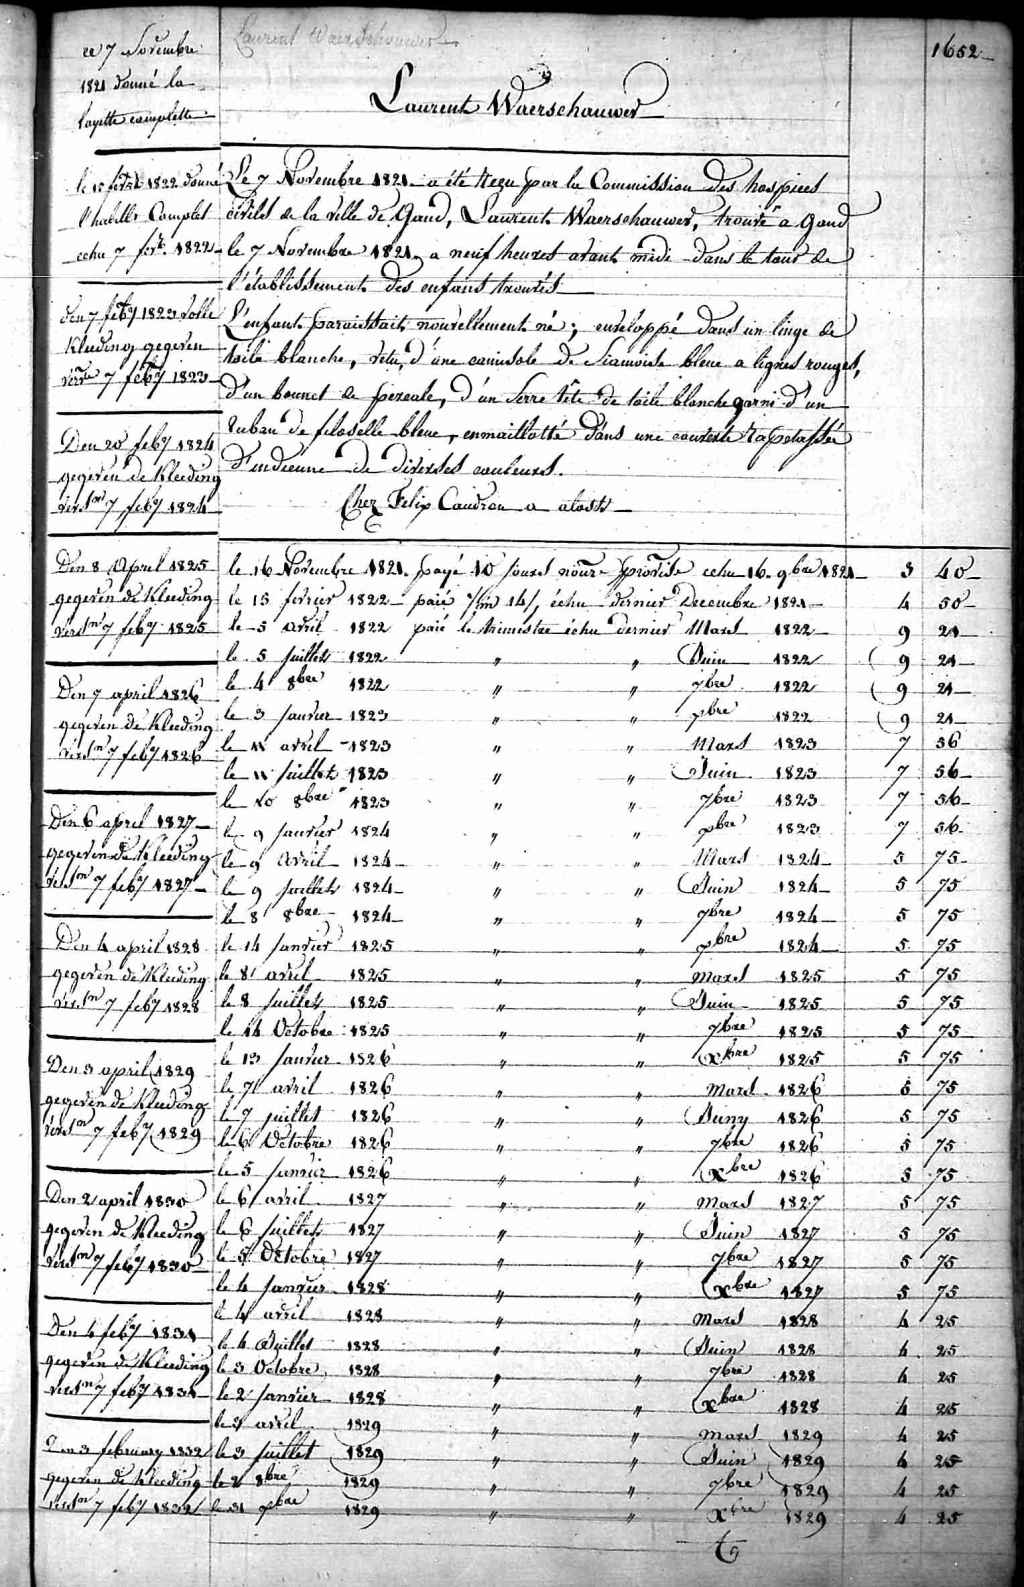 Laurent Waerschauwer
1652
Laurent Waerschauwer
ce 7 Novembre
1821 donné la
layette complette
le 15 1822 donné
l'habillt Complet
echu 7 1822
den 7 feby 1823 volle
Kleeding gegeven
7 feby 1823
Den 20 feby 1824
gegeven de Kleeding
verstn 7 feby 1824
Den 8 April 1825
gegeven de Kleeding
verstn 7 feby 1825
Den 7 april 1826
gegeven de Kleeding
verstn 7 feby 1826
Den 6 april 1827
gegeven de Kleeding
verstn 7 feby 1827
Den 4 april 1828
gegeven de Kleeding
verstn 7 feby 1828
Den 3 april 1829
gegeven de Kleeding
verstn 7 feby 1829
Den 2 april 1830
gegeven de Kleeding
verstn 7 feby 1830
Den 4 feby 1831
gegeven de Kleeding
verstn 7 feby 1831
Den 3 february 1832
gegeven de Kleeding
verstn 7 feby 1832
Le 7 Novembre 1821 a été reçu par la Commission des hospices
civiles de la ville de Gand, Laurent Waerschauwer, trouvé a Gand
le 7 Novembre 1821 a neuf heures avant midi dans le tour de
l'établissement des enfans trouvés
L'enfant paraissait nouvellement né; enveloppé dans un linge de
toile blanche, vetu d'une camisole de Siamoise bleue a lignes rouges,
d'un bonnet de percale, d'un serre tête de toile blanche garni d'un
ruban de filoselle bleue, enmaillotté dans une couverte
d'indienne de diverses couleurs.
Chez Felix Caudron a alost
le 16 Novembre 1821 payé 10 jours nourre echu 16 9bre 1821 3 40
le 15 fevrier 1822 paié échu dernier Decembre 1821 4 50
le 5 avril 1822 paié le trimestre échu dernier Mars 1822 9 21
le 5 juillet 1822 " " Juin 1822 9 21
le 4 8bre 1822 " " 7bre 1822 9 21
le 3 janvier 1823 " " xbre 1822 9 21
le 11 avril 1823 " " Mars 1823 7 56
le 11 juillet 1823 " " Juin 1823 7 56
le 10 8bre 1823 " " 7bre 1823 7 56
le 9 janvier 1824 " " xbre 1823 7 56
le 9 avril 1824 " " Mars 1824 5 75
le 9 juillet 1824 " " Juin 1824 5 75
le 8 8bre 1824 " " 7bre 1824 5 75
le 14 janvier 1825 " " xbre 1824 5 75
le 8 avril 1825 " " mars 1825 5 75
le 8 juillet 1825 " " Juin 1825 5 75
le 14 Octobre 1825 " " 7bre 1825 5 75
le 13 janvier 1826 " " xbre 1825 5 75
le 7 avril 1826 " " mars 1826 5 75
le 7 juillet 1826 " " Juny 1826 5 75
le 6 Octobre 1826 " " 7bre 1826 5 75
le 5 janvier 1826 " " xbre 1826 5 75
le 6 avril 1827 " " mars 1827 5 75
le 6 juillet 1827 " " Juin 1827 5 75
le 5 Octobre 1827 " " 7bre 1827 5 75
le 4 janvier 1828 " " xbre 1827 5 75
le 4 avril 1828 " " mars 1828 4 25
le 4 Juillet 1828 " " Juin 1828 4 25
le 3 Octobre 1828 " " 7bre 1828 4 25
le 2 janvier 1828 " " xbre 1828 4 25
le 3 avril 1829 " " mars 1829 4 25
le 3 juillet 1829 " " Juin 1829 4 25
le 2 8bre 1829 " " 7bre 1829 4 25
le 31 xbre 1829 " " xbre 1829 4 25